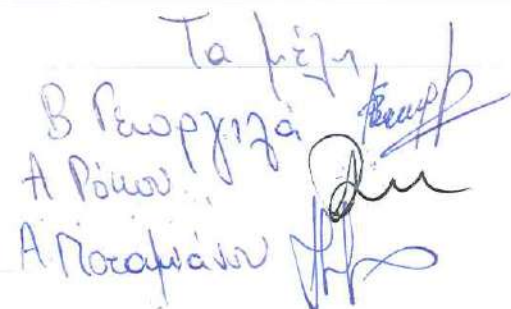 Τα μέλη
Β Γεωργιλά
Α Ρόκου
Α Ποταμιάνου